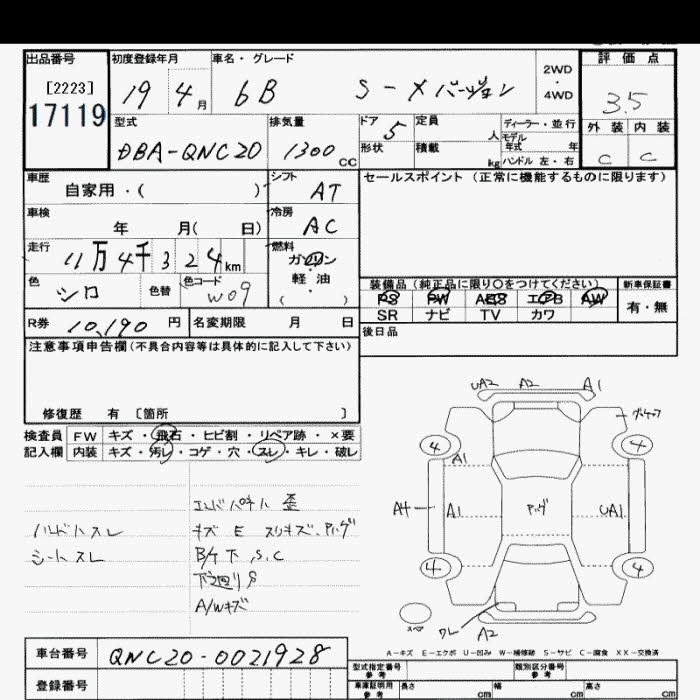 出品番号 初度登録年月 車名・グレード 2WD・4WD 評価点
[2223] 19 4月 bB S-Xバージョン 3.5
17119 型式 排気量 ドア 5 定員 人 ディーラー・並行 外装 内装
DBA-QNC20 1300 CC 形状 積載 kg モデル年式 年 C C
ハンドル 左・右
車歴 シフト セールスポイント(正常に機能するものに限ります)
自家用・( ) AT
車検 冷房
年 月( 日) AC
走行 燃料
11万4千324km ガソリン・軽油
( )
色 色替 色コード 装備品(純正品に限り○をつけてください) 新車保証書
シロ W09 PS PW ABS エアB AW 有・無
SR ナビ TV カワ
R券 10,190 円 名変期限 月 日 後日品
注意事項申告欄(不具合内容等は具体的に記入して下さい)
修復歴 有 [箇所 ]
検査員 FW キズ・飛石・ヒビ割・リペア跡・×要
記入欄 内装 キズ・汚レ・コゲ・穴・スレ・キレ・破レ
UA2 A2 A1
4 4
A1
A4 A1 UA1
4 4
ワレ A2
スペア
エンドパネル 歪
ハンドルスレ キズ E スリキズ、
シートスレ B/下 S.C
下廻りS
A/Wキズ
A-キズ E-エクボ U-凹み W-補修跡 S-サビ C-腐食 XX-交換済
車台番号 QNC20-0021928
登録番号
型式指定番号 参考 類別区分番号 参考
車庫証明用 参考 長さ cm 幅 cm 高さ cm